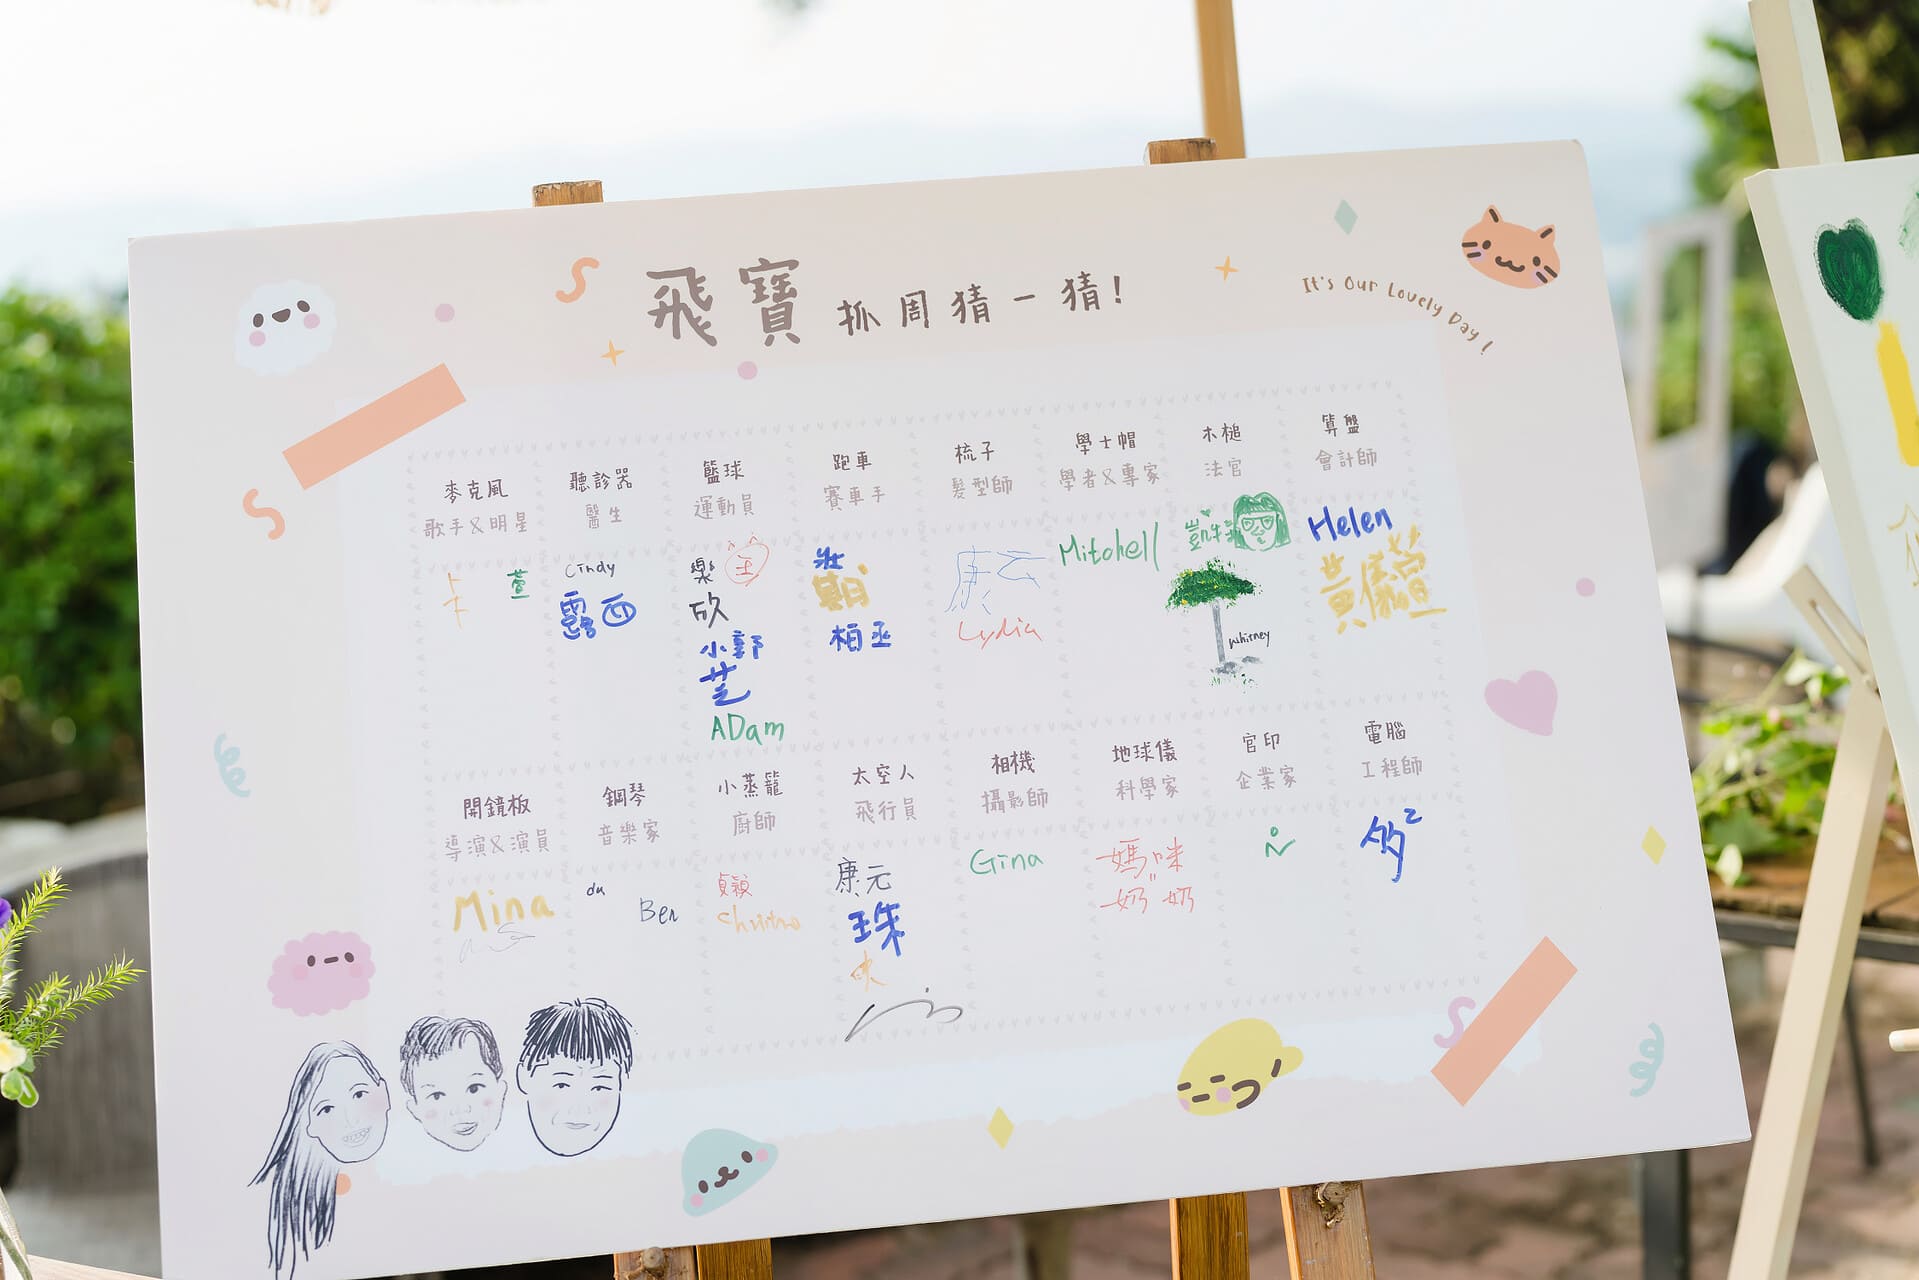 飛寶 抓周猜一猜!
It's Our Lovely Day!
麥克風
歌手&明星
卡
萱
聽診器
醫生
Cindy
露西
籃球
運動員
樂
欣
小郭
芝
ADam
跑車
賽車手
壯
柏丞
梳子
髮型師
康云
Lydia
學士帽
學者&專家
Mitchell
木槌
法官
whitney
算盤
會計師
Helen
黃儀萱
開鏡板
導演&演員
Mina
鋼琴
音樂家
da
Ben
小蒸籠
廚師
貞穎
太空人
飛行員
康元
珠
相機
攝影師
Gina
地球儀
科學家
媽咪
奶奶
官印
企業家
電腦
工程師